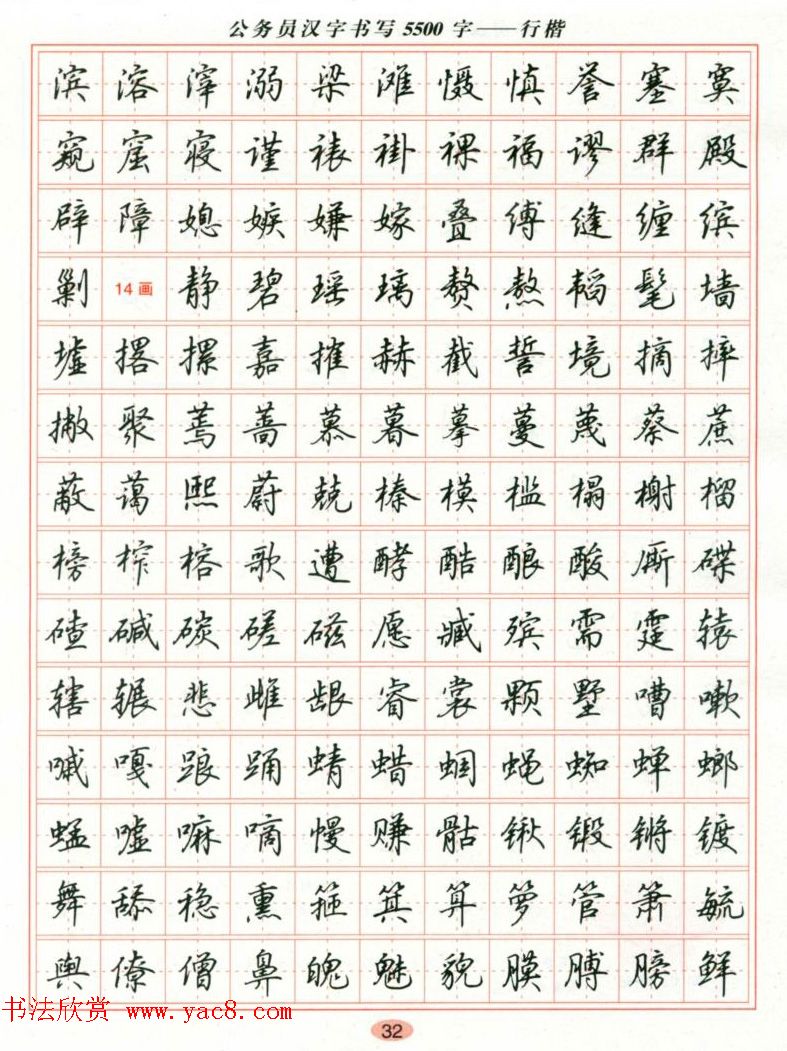 公务员汉字书写5500字——行楷
滨溶滓溺梁滩慑慎誉塞寞
窥窟寝谨裱褂裸福谬群殿
辟障媳嫉嫌嫁叠缚缝缠缤
剿 14画 静碧瑶璃赘熬韬髦墙
墟撂摞嘉摧赫截誓境摘摔
撇聚蔫蔷慕暮摹蔓蔑蔡蔗
蔽蔼熙蔚兢榛模槛榻榭榴
榜榨榕歌遭酵酷酿酸厮碟
碴碱碳磋磁愿臧殡需霆辕
辖辗悲雌龈睿裳颗墅嘈嗽
嘁嘎踉踊蜻蜡蝈蝇蜘蝉螂
蜢嘘嘛嘀幔赚骷锹锻锵镀
舞舔稳熏箍箕算箩管箫毓
舆僚僧鼻魄魅貌膜膊膀鲜
书法欣赏 www.yac8.com
32